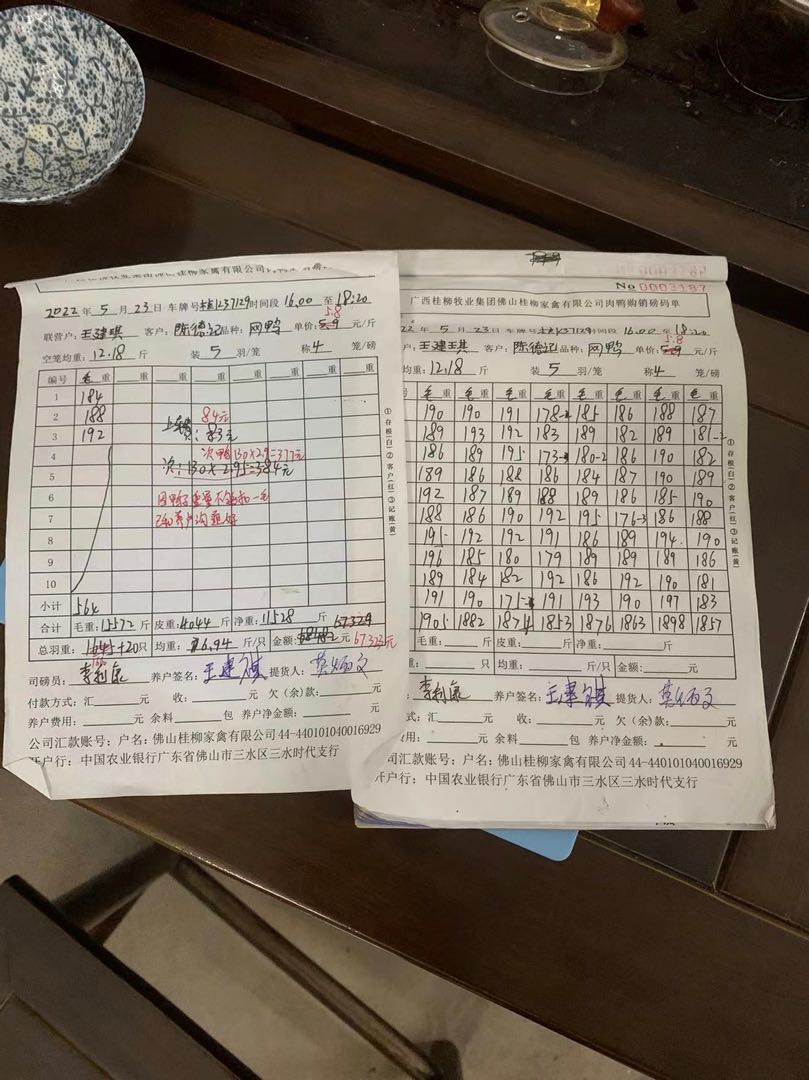 桂柳家禽有限公司
2022年5月23日 车牌号 237129 时间段 16.00 至 18:20
联营户：王建琪 客户：陈德记 品种：网鸭 单价：5.9 5.8 元/斤
空笼均重：12.18 斤 装 5 羽/笼 称 4 笼/磅
编号 毛重 重 重 重 重 重 重 重
1 184
2 188 84元
3 192 : 83元
4 次鸭130×2.9=377元
5 次:130×2.95=384元
6
7
8
9
10
小计 564
合计 毛重：15572 斤 皮重：4044 斤 净重：11528 斤 67329
总羽重： +20只 均重： 6.94 斤/只 金额： 元 67323元
司磅员：李利康 养户签名：王建琪 提货人：
付款方式：汇 元 收： 元 欠（余）款： 元
养户费用： 元 余料 包 养户净金额： 元
公司汇款账号：户名：佛山桂柳家禽有限公司44-440101040016929
开户行：中国农业银行广东省佛山市三水区三水时代支行
①存根(白)②客户(红)③记账(黄)
No 0003187
广西桂柳牧业集团佛山桂柳家禽有限公司肉鸭购销磅码单
22年5月23日 车牌号 237129 时间段 16.00 至 18:20
王建琪 客户：陈德记 品种：网鸭 单价：5.9 5.8 元/斤
均重：12.18 斤 装 5 羽/笼 称 4 笼/磅
毛重 毛重 毛重 毛重 毛重 毛重 毛重 毛重
190 190 191 178-2 185 186 188 187
189 193 192 183 189 182 189 181-2
186 189 195 173-3 180-2 186 190 182
189 186 188 186 184 187 190 189
192 187 189 188 189 186 185 190
188 186 190 192 195 176-3 186 188
195 192 192 191 186 189 194 190
196 185 180 179 189 189 189 186
189 184 182 192 186 192 190 181
191 190 175 191 193 190 197 183
1905 1882 1874 1853 1876 1863 1898 1857
毛重： 斤 皮重： 斤 净重： 斤
只 均重： 斤/只 金额： 元
李利康 养户签名：王建琪 提货人：
式：汇 元 收： 元 欠（余）款： 元
费用： 元 余料 包 养户净金额： 元
司汇款账号：户名：佛山桂柳家禽有限公司44-440101040016929
开户行：中国农业银行广东省佛山市三水区三水时代支行
①存根(白)②客户(红)③记账(黄)